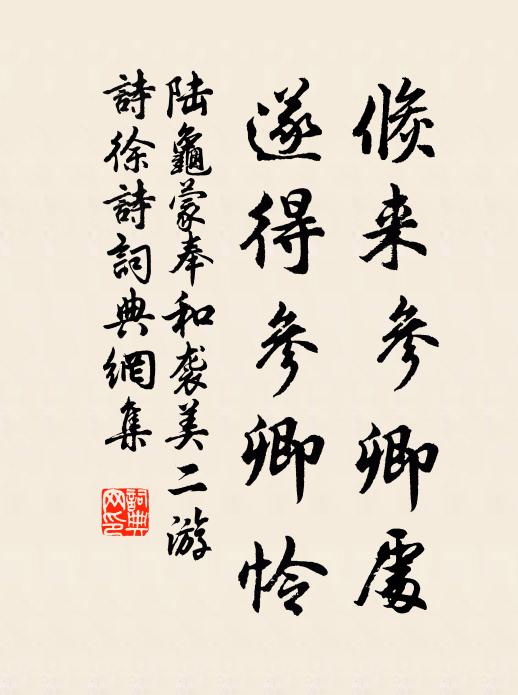 倏来參卿處
遂得參卿怜
陆龜蒙奉和袭美二游
詩徐詩詞典網集
詞典
网印